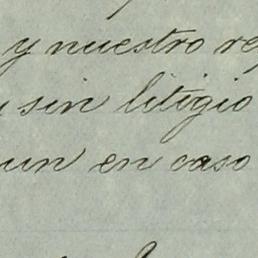 y nuestro re
sin litigio
un en caso